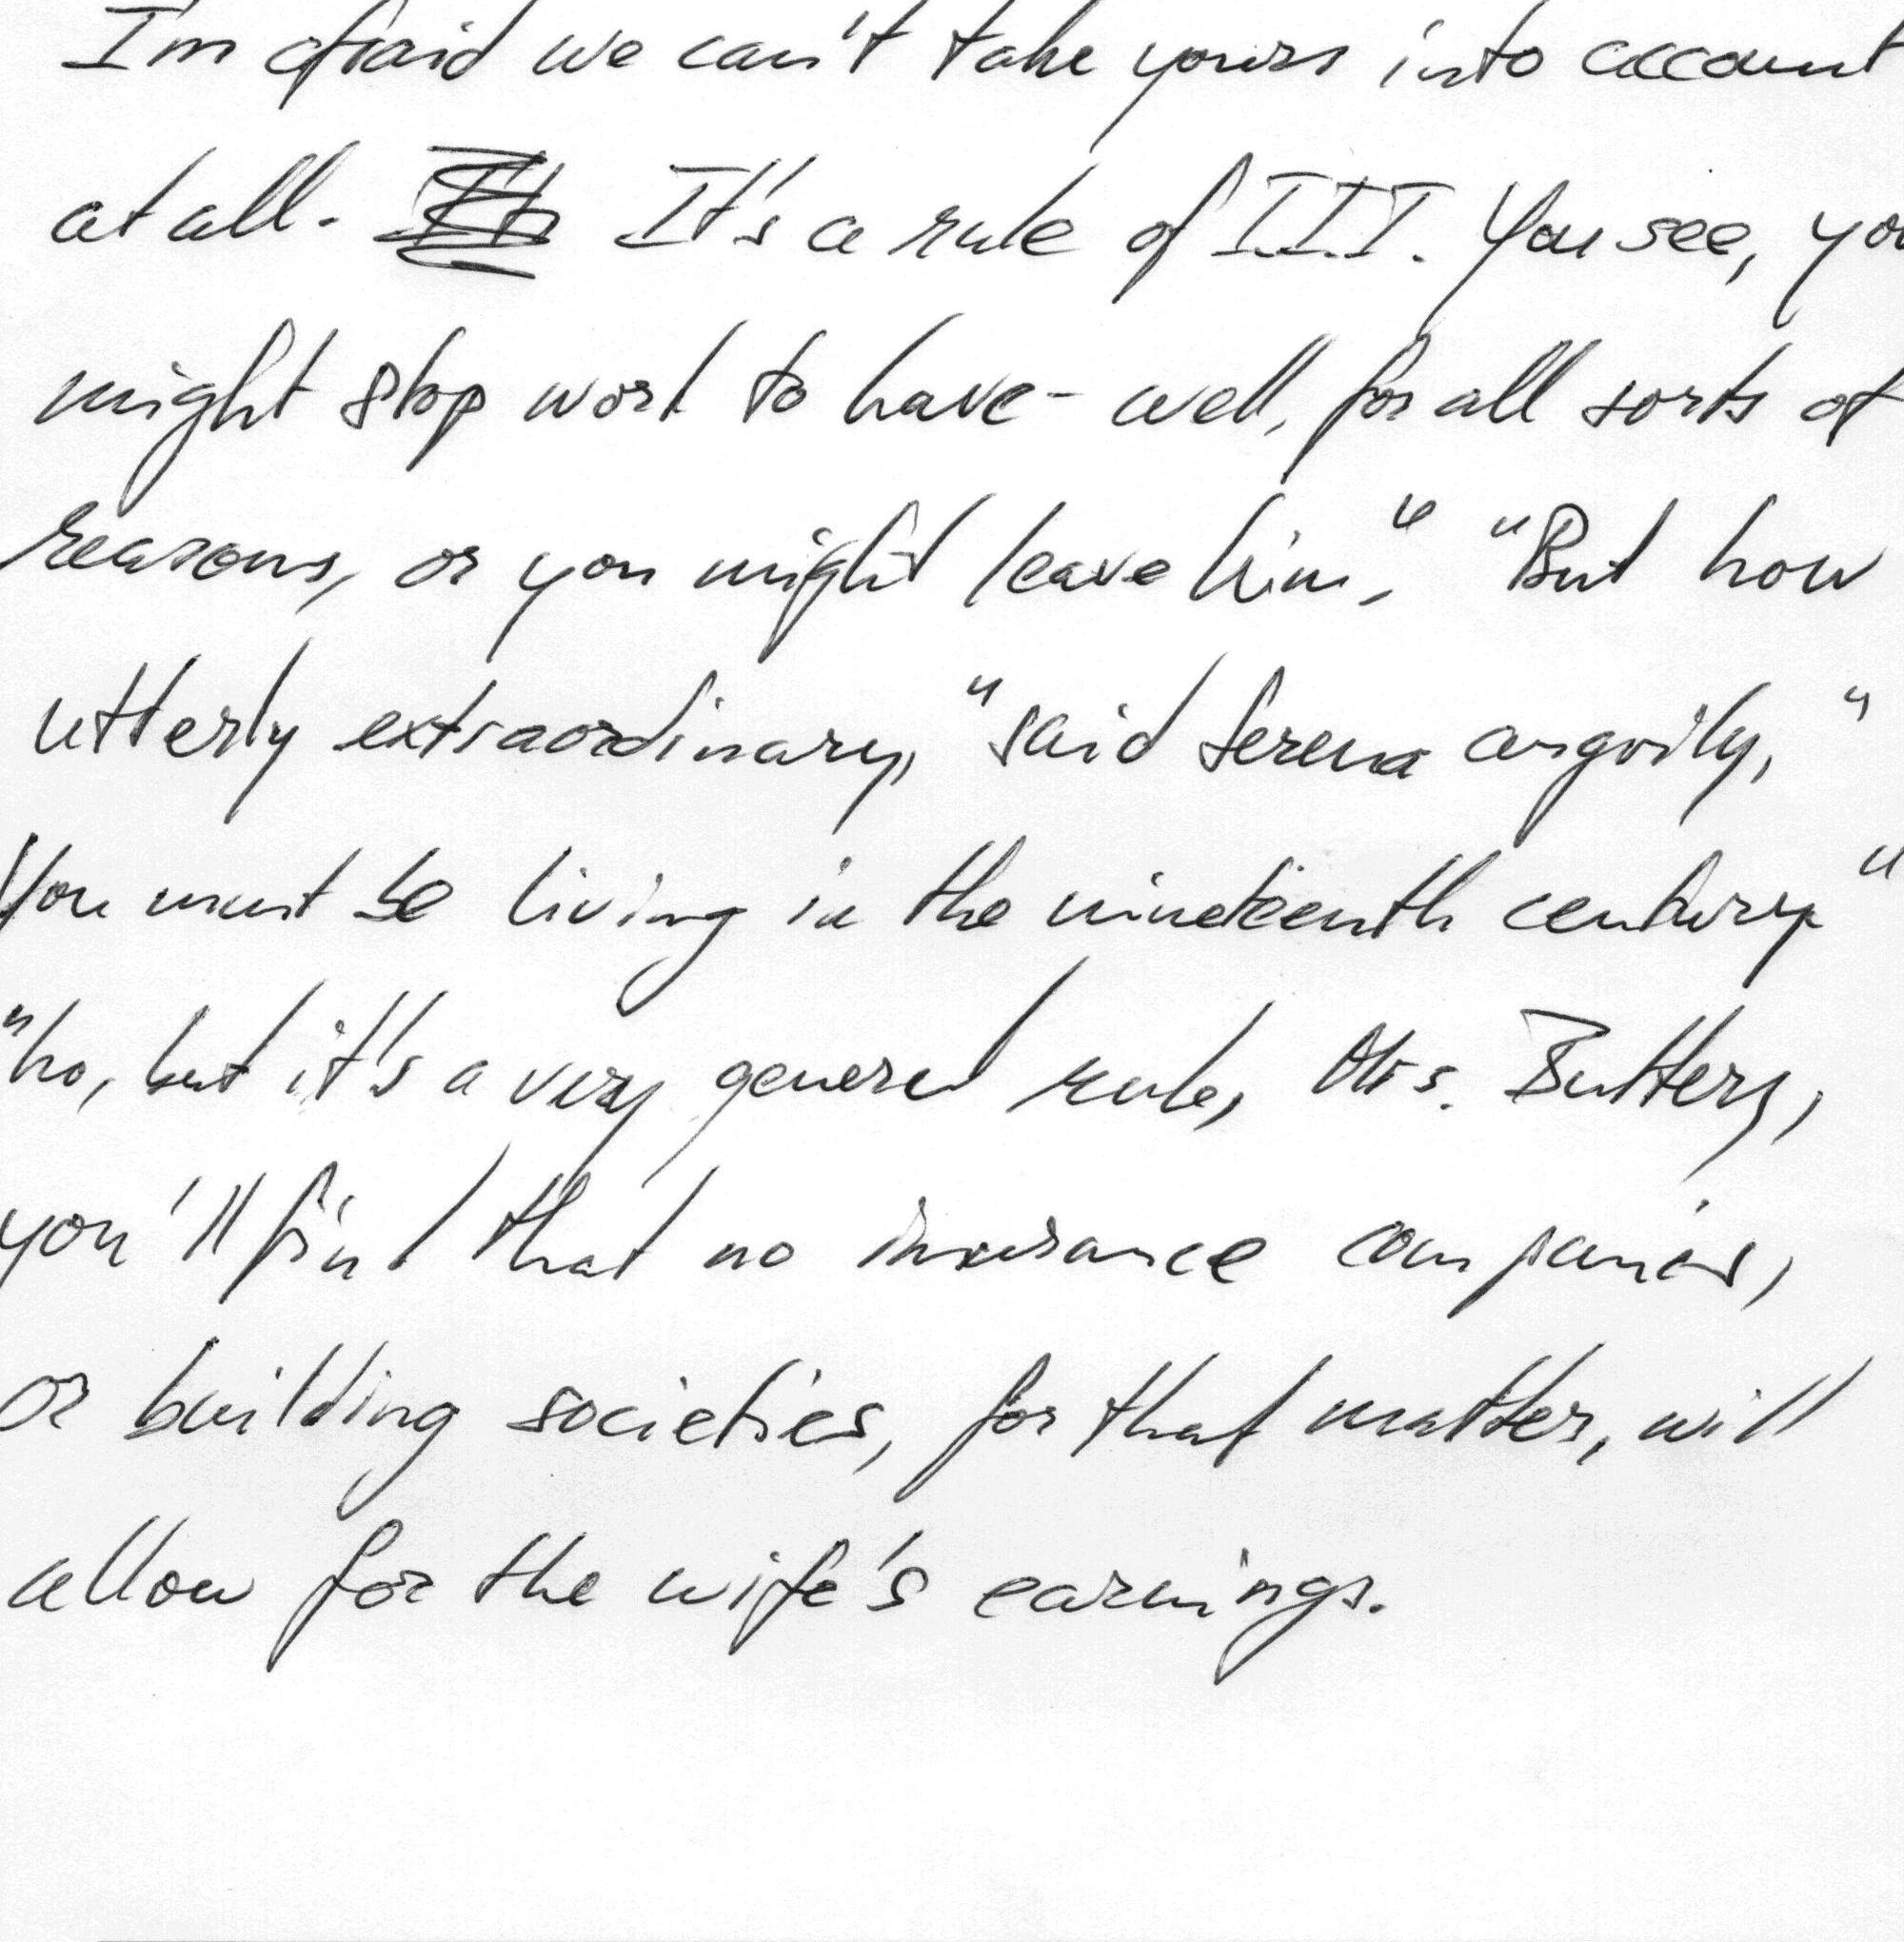 I'm afraid we can't take yours into account
at all. It's a rule of I.I.I. You see, you
might stop work to have - well, for all sorts of
reasons, or you might leave him." "But how
utterly extraordinary," said Serena angrily, "
You must be living in the nineteenth century."
"No, but it's a very general rule, Mrs. Buttery,
you'll find that no insurance companies,
or building societies, for that matter, will
allow for the wife's earnings.